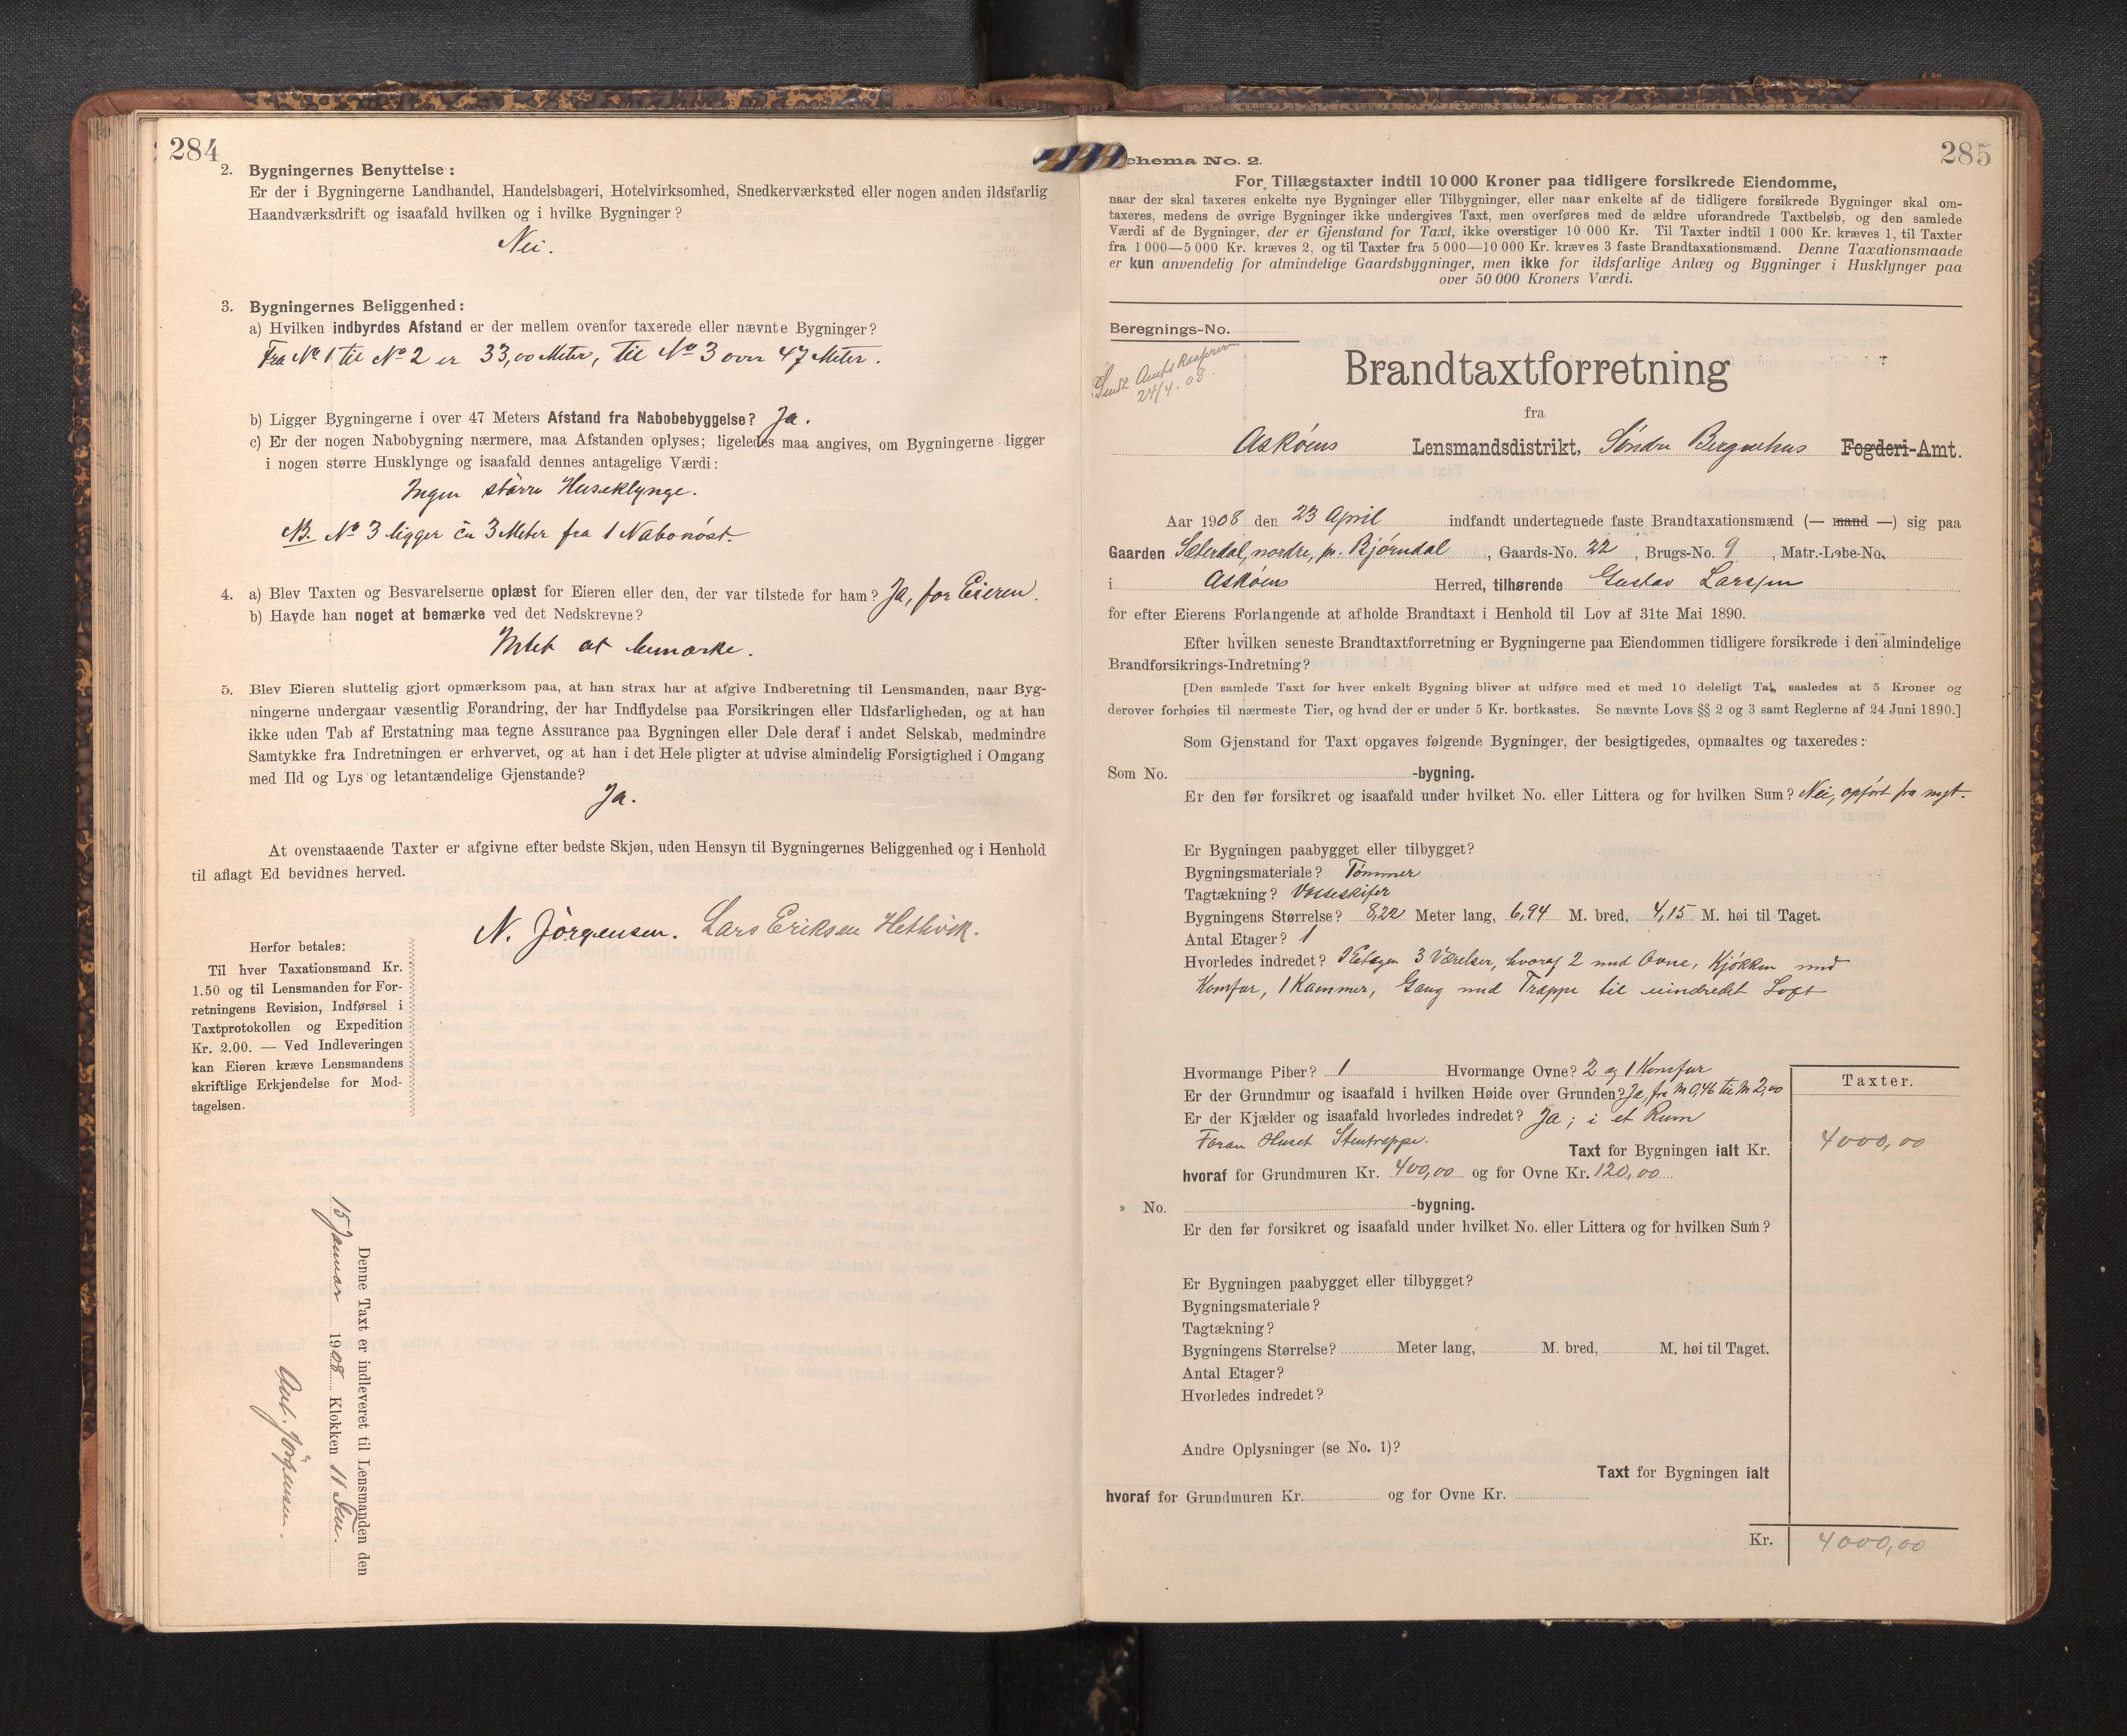 284
2. Bygningernes Benyttelse:
Er der i Bygningerne Landhandel, Handelsbageri, Hotelvirksomhed, Snedkerværksted eller nogen anden ildsfarlig
Haandværksdrift og isaafald hvilken og i hvilke Bygninger?
Nei.
3. Bygningernes Beliggenhed:
a) Hvilken indbyrdes Afstand er der mellem ovenfor taxerede eller nævnte Bygninger?
Fra No 1 til No 2 er 33,00 Meter, til No 3 over 47 Meter.
b) Ligger Bygningerne i over 47 Meters Afstand fra Nabobebyggelse? Ja.
c) Er der nogen Nabobygning nærmere, maa Afstanden oplyses; ligeledes maa angives, om Bygningerne ligger
i nogen større Husklynge og isaafald dennes antagelige Værdi:
Ingen större Huseklynge.
NB. No 3 ligger ca 3 Meter fra 1 Nabonöst.
4. a) Blev Taxten og Besvarelserne oplæst for Eieren eller den, der var tilstede for ham? Ja, for Eieren.
b) Havde han noget at bemærke ved det Nedskrevne?
Intet at bemærke.
5. Blev Eieren sluttelig gjort opmærksom paa, at han strax har at afgive Indberetning til Lensmanden, naar Byg-
ningerne undergaar væsentlig Forandring, der har Indflydelse paa Forsikringen eller Ildsfarligheden, og at han
ikke uden Tab af Erstatning maa tegne Assurance paa Bygningen eller Dele deraf i andet Selskab, medmindre
Samtykke fra Indretningen er erhvervet, og at han i det Hele pligter at udvise almindelig Forsigtighed i Omgang
med Ild og Lys og letantændelige Gjenstande?
Ja.
At ovenstaaende Taxter er afgivne efter bedste Skjøn, uden Hensyn til Bygningernes Beliggenhed og i Henhold
til aflagt Ed bevidnes herved.
N. Jörgensen. Lars Eriksen Hetlevik.
Herfor betales:
Til hver Taxationsmand Kr.
1.50 og til Lensmanden for For-
retningens Revision, Indførsel i
Taxtprotokollen og Expedition
Kr. 2.00. — Ved Indleveringen
kan Eieren kræve Lensmandens
skriftlige Erkjendelse for Mod-
tagelsen.
Denne Taxt er indleveret til Lensmanden den
15 Januar 1908 Klokken 11 Fm.
Ant. Jörgensen.
285
Schema No. 2.
For Tillægstaxter indtil 10 000 Kroner paa tidligere forsikrede Eiendomme,
naar der skal taxeres enkelte nye Bygninger eller Tilbygninger, eller naar enkelte af de tidligere forsikrede Bygninger skal om-
taxeres, medens de øvrige Bygninger ikke undergives Taxt, men overføres med de ældre uforandrede Taxtbeløb, og den samlede
Værdi af de Bygninger, der er Gjenstand for Taxt, ikke overstiger 10 000 Kr. Til Taxter indtil 1 000 Kr. kræves 1, til Taxter
fra 1 000—5 000 Kr. kræves 2, og til Taxter fra 5 000—10 000 Kr. kræves 3 faste Brandtaxationsmænd. Denne Taxationsmaade
er kun anvendelig for almindelige Gaardsbygninger, men ikke for ildsfarlige Anlæg og Bygninger i Husklynger paa
over 50 000 Kroners Værdi.
Beregnings-No.
Sendt
24/4. 08.
Brandtaxtforretning
fra
Asköens Lensmandsdistrikt, Söndre Bergenhus Fogderi-Amt.
Aar 1908 den 23 April indfandt undertegnede faste Brandtaxationsmænd (— mand —) sig paa
Gaarden Sæterdal, nordre, pr. Bjørndal, Gaards-No. 22, Brugs-No. 9, Matr.-Løbe-No.
i Asköens Herred, tilhørende Gustav Larssen
for efter Eierens Forlangende at afholde Brandtaxt i Henhold til Lov af 31te Mai 1890.
Efter hvilken seneste Brandtaxtforretning er Bygningerne paa Eiendommen tidligere forsikrede i den almindelige
Brandforsikrings-Indretning?
[Den samlede Taxt for hver enkelt Bygning bliver at udføre med et med 10 deleligt Tal, saaledes at 5 Kroner og
derover forhøies til nærmeste Tier, og hvad der er under 5 Kr. bortkastes. Se nævnte Lovs §§ 2 og 3 samt Reglerne af 24 Juni 1890.]
Som Gjenstand for Taxt opgaves følgende Bygninger, der besigtigedes, opmaaltes og taxeredes:
Som No. -bygning.
Er den før forsikret og isaafald under hvilket No. eller Littera og for hvilken Sum? Nei, opfört fra nyt.
Er Bygningen paabygget eller tilbygget?
Bygningsmateriale? Tömmer
Tagtækning? Vosseskifer
Bygningens Størrelse? 8,22 Meter lang, 6,94 M. bred, 4,15 M. høi til Taget.
Antal Etager? 1
Hvorledes indredet? I Etagen 3 Værelser, hvoraf 2 med Ovne, Kjökken med
Komfur, 1 Kammer, Gang med Trappe til uindredet Loft
Hvormange Piber? 1 Hvormange Ovne? 2 og 1 Komfur
Taxter.
Er der Grundmur og isaafald i hvilken Høide over Grunden? Ja, fra M 0,46 til M 2,00
Er der Kjælder og isaafald hvorledes indredet? Ja; i et Rum
Foran Huset Stentrappe.
Taxt for Bygningen ialt Kr. 4000,00
hvoraf for Grundmuren Kr. 400,00 og for Ovne Kr. 120,00
» No. -bygning.
Er den før forsikret og isaafald under hvilket No. eller Littera og for hvilken Sum?
Er Bygningen paabygget eller tilbygget?
Bygningsmateriale?
Tagtækning?
Bygningens Størrelse? Meter lang, M. bred, M. høi til Taget.
Antal Etager?
Hvorledes indredet?
Andre Oplysninger (se No. 1)?
Taxt for Bygningen ialt
hvoraf for Grundmuren Kr. og for Ovne Kr.
Kr. 4000,00